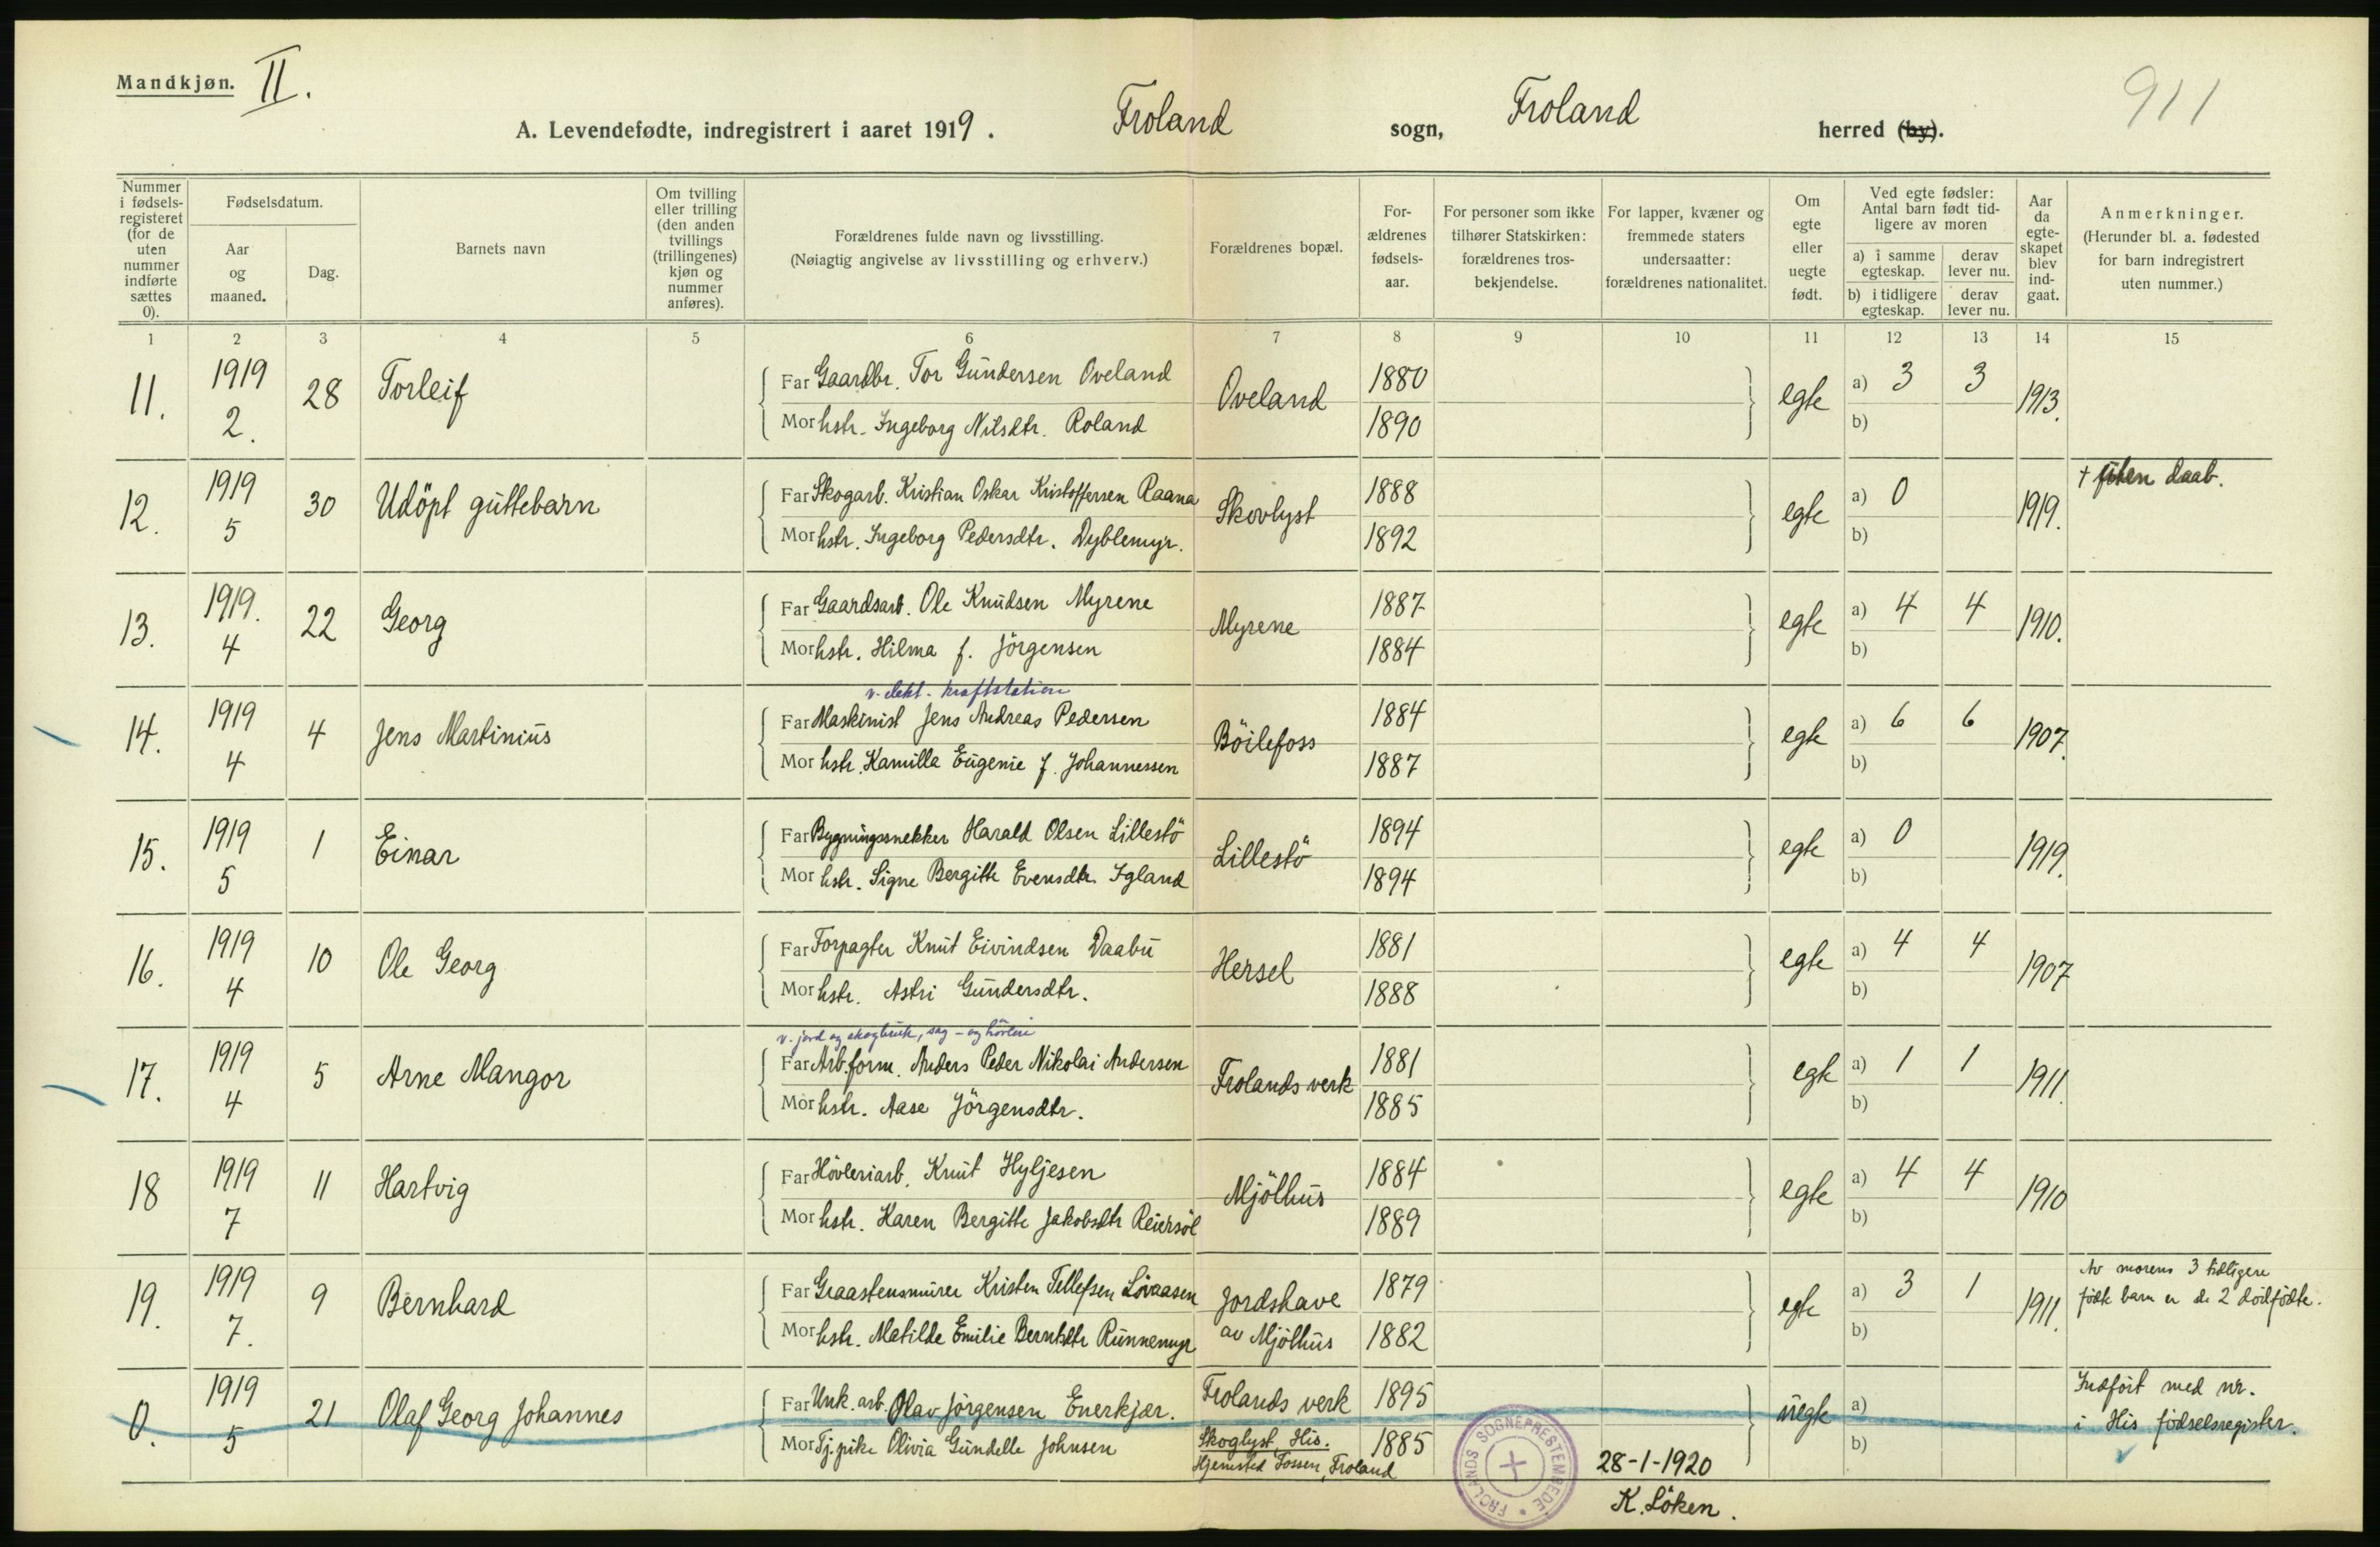 Mandkjøn. II.
911
A. Levendefødte, indregistrert i aaret 1919. Froland sogn, Froland herred (by).
Nummer i fødselsregisteret (for de uten nummer indførte sættes 0).
Fødselsdatum.
Aar og maaned.
Dag.
Barnets navn
Om tvilling eller trilling (den anden tvillings (trillingenes) kjøn og nummer anføres).
Forældrenes fulde navn og livsstilling.
(Nøiagtig angivelse av livsstilling og erhverv.)
Forældrenes bopæl.
Forældrenes fødselsaar.
For personer som ikke tilhører Statskirken: forældrenes trosbekjendelse.
For lapper, kvæner og fremmede staters undersaatter: forældrenes nationalitet.
Om egte eller uegte født.
Ved egte fødsler: Antal barn født tidligere av moren
a) i samme egteskap.
derav lever nu.
b) i tidligere egteskap.
derav lever nu.
Aar da egteskapet blev indgaat.
Anmerkninger.
(Herunder bl. a. fødested for barn indregistrert uten nummer.)
1 2 3 4 5 6 7 8 9 10 11 12 13 14 15
11. 1919 2. 28 Torleif
Far Gaardbr. Tor Gundersen Oveland
Mor hstr. Ingeborg Nilsdtr. Roland
Oveland 1880 1890 egte a) 3 3 b) 1913.
12. 1919 5 30 Udöpt guttebarn
Far Skogarb. Kristian Oskar Kristoffersen Raana
Mor hstr. Ingeborg Pedersdtr. Dyblemyr.
Skovlyst 1888 1892 egte a) 0 b) 1919.
† uten daab.
13. 1919. 4 22 Georg
Far Gaardsarb. Ole Knudsen Myrene
Mor hstr. Hilma f. Jörgensen
Myrene 1887 1884 egte a) 4 4 b) 1910.
14. 1919 4 4 Jens Martinius
v. elekt. kraftstation
Far Maskinist Jens Andreas Pedersen
Mor hstr. Kamilla Eugenie f. Johannessen
Böilefoss 1884 1887 egte a) 6 6 b) 1907.
15. 1919 5 1 Einar
Far Bygningssnekker Harald Olsen Lillestö
Mor hstr. Signe Bergitte Evensdtr. Igland
Lillestö 1894 1894 egte a) 0 b) 1919.
16. 1919 4 10 Ole Georg
Far Forpagter Knut Eivindsen Daabu
Mor hstr. Astri Gundersdtr.
Hersel 1881 1888 egte a) 4 4 b) 1907
17. 1919 4 5 Arne Mangor
v. jord og skogbruk, sag- og hövleri
Far Arb.form. Anders Peder Nikolai Andersen
Mor hstr. Aase Jörgensdtr.
Frolands verk 1881 1885 egte a) 1 1 b) 1911.
18 1919 7 11 Hartvig
Far Hövleriarb. Knut Hyljesen
Mor hstr. Karen Bergitte Jakobsdtr Reiersöl
Mjölhus 1884 1889 egte a) 4 4 b) 1910
19. 1919 7. 9 Bernhard
Far Graastensmurer Kristen Tellefsen Lövaasen
Mor hstr. Matilde Emilie Berntsdtr Runnemyr
Jordshave av Mjölhus 1879 1882 egte a) 3 1 b) 1911.
Av morens 3 tidligere
födte barn er de 2 dödfödte.
0. 1919 5 21 Olaf Georg Johannes
Far Unk. arb. Olav Jörgensen Enerkjær.
Mor Tj.pike Olivia Gundelle Johnsen
Frolands verk 1895
Skoglyst, His. 1885
Hjemsted Fossen, Froland
uegte a) b)
Indfört med nr.
i His födselsregister.
FROLANDS SOGNEPRESTEMBEDE
28-1-1920
K. Löken.